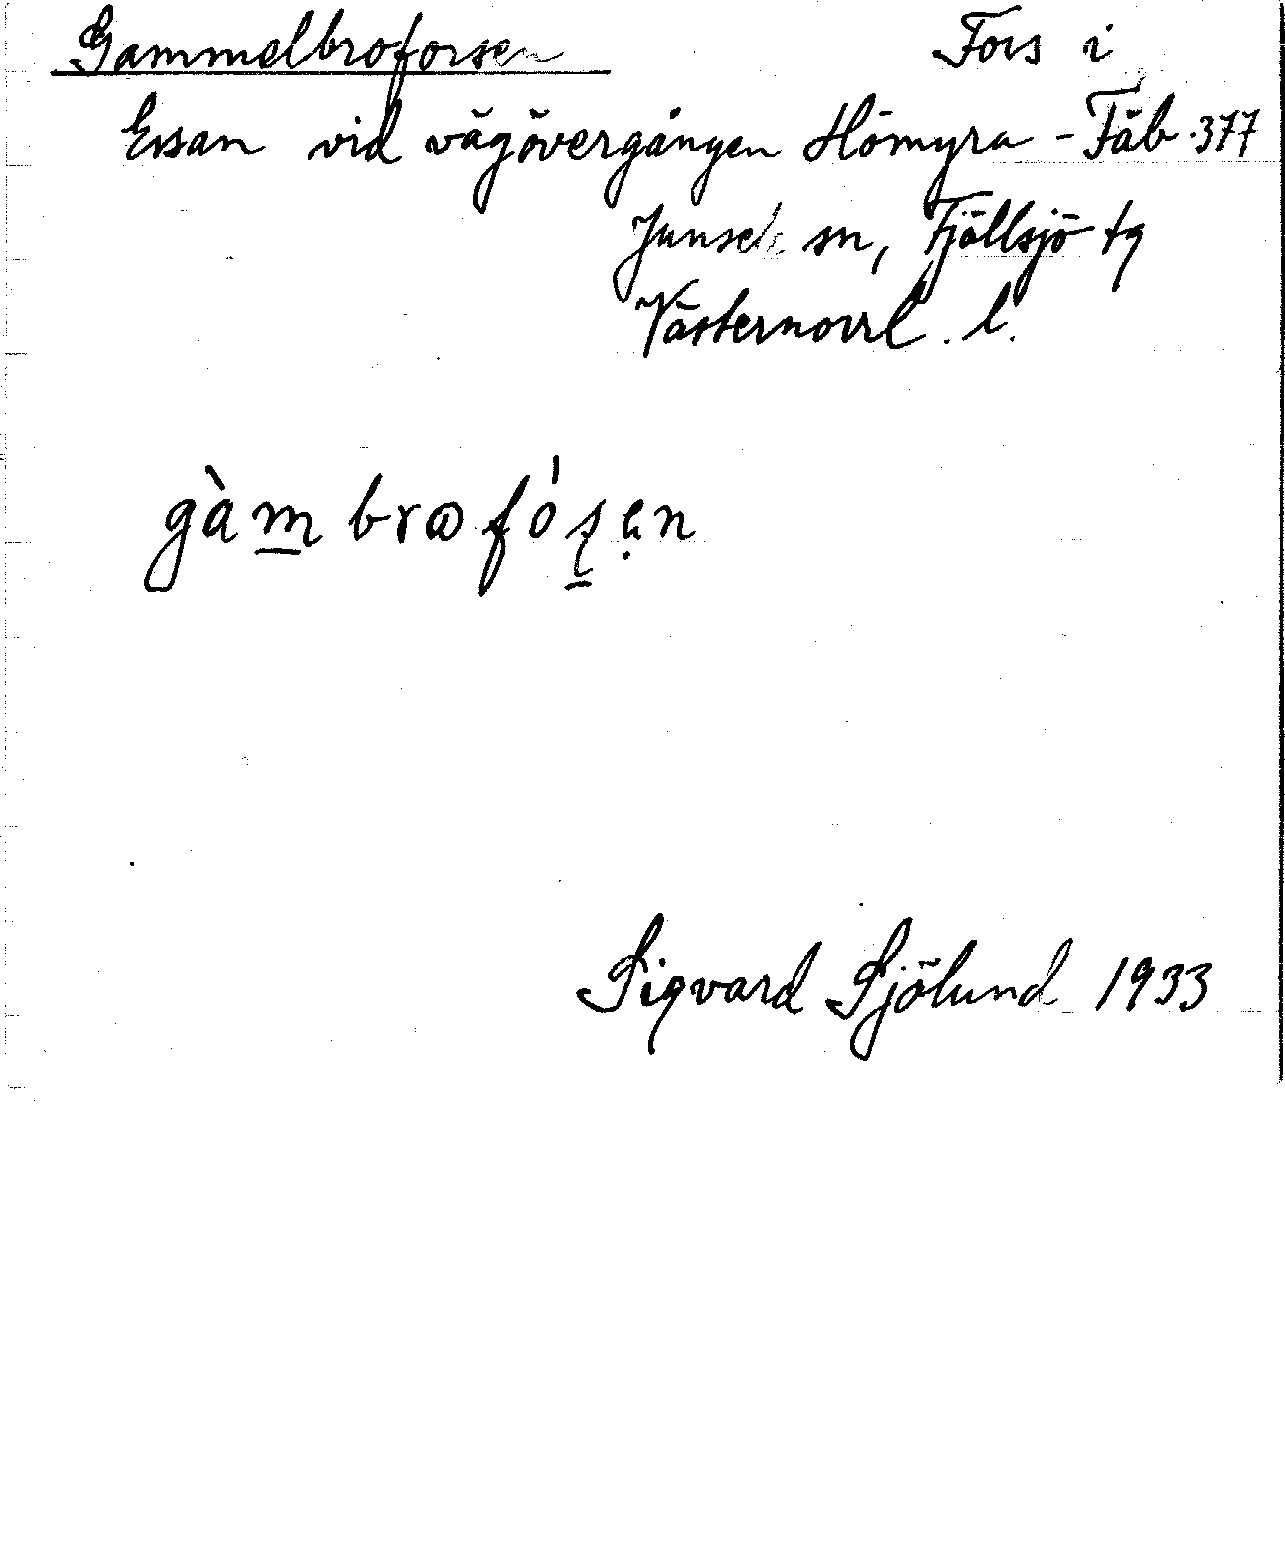 Gammelbroforsen Fors i
Ersan vid vägövergången Hömyra - Fäb. 377
Junsele sn, Fjällsjö tg
Västernorrl. l.
gàm̲brωfó̍ʂ̲ẹn
Sigvard Sjölund 1933